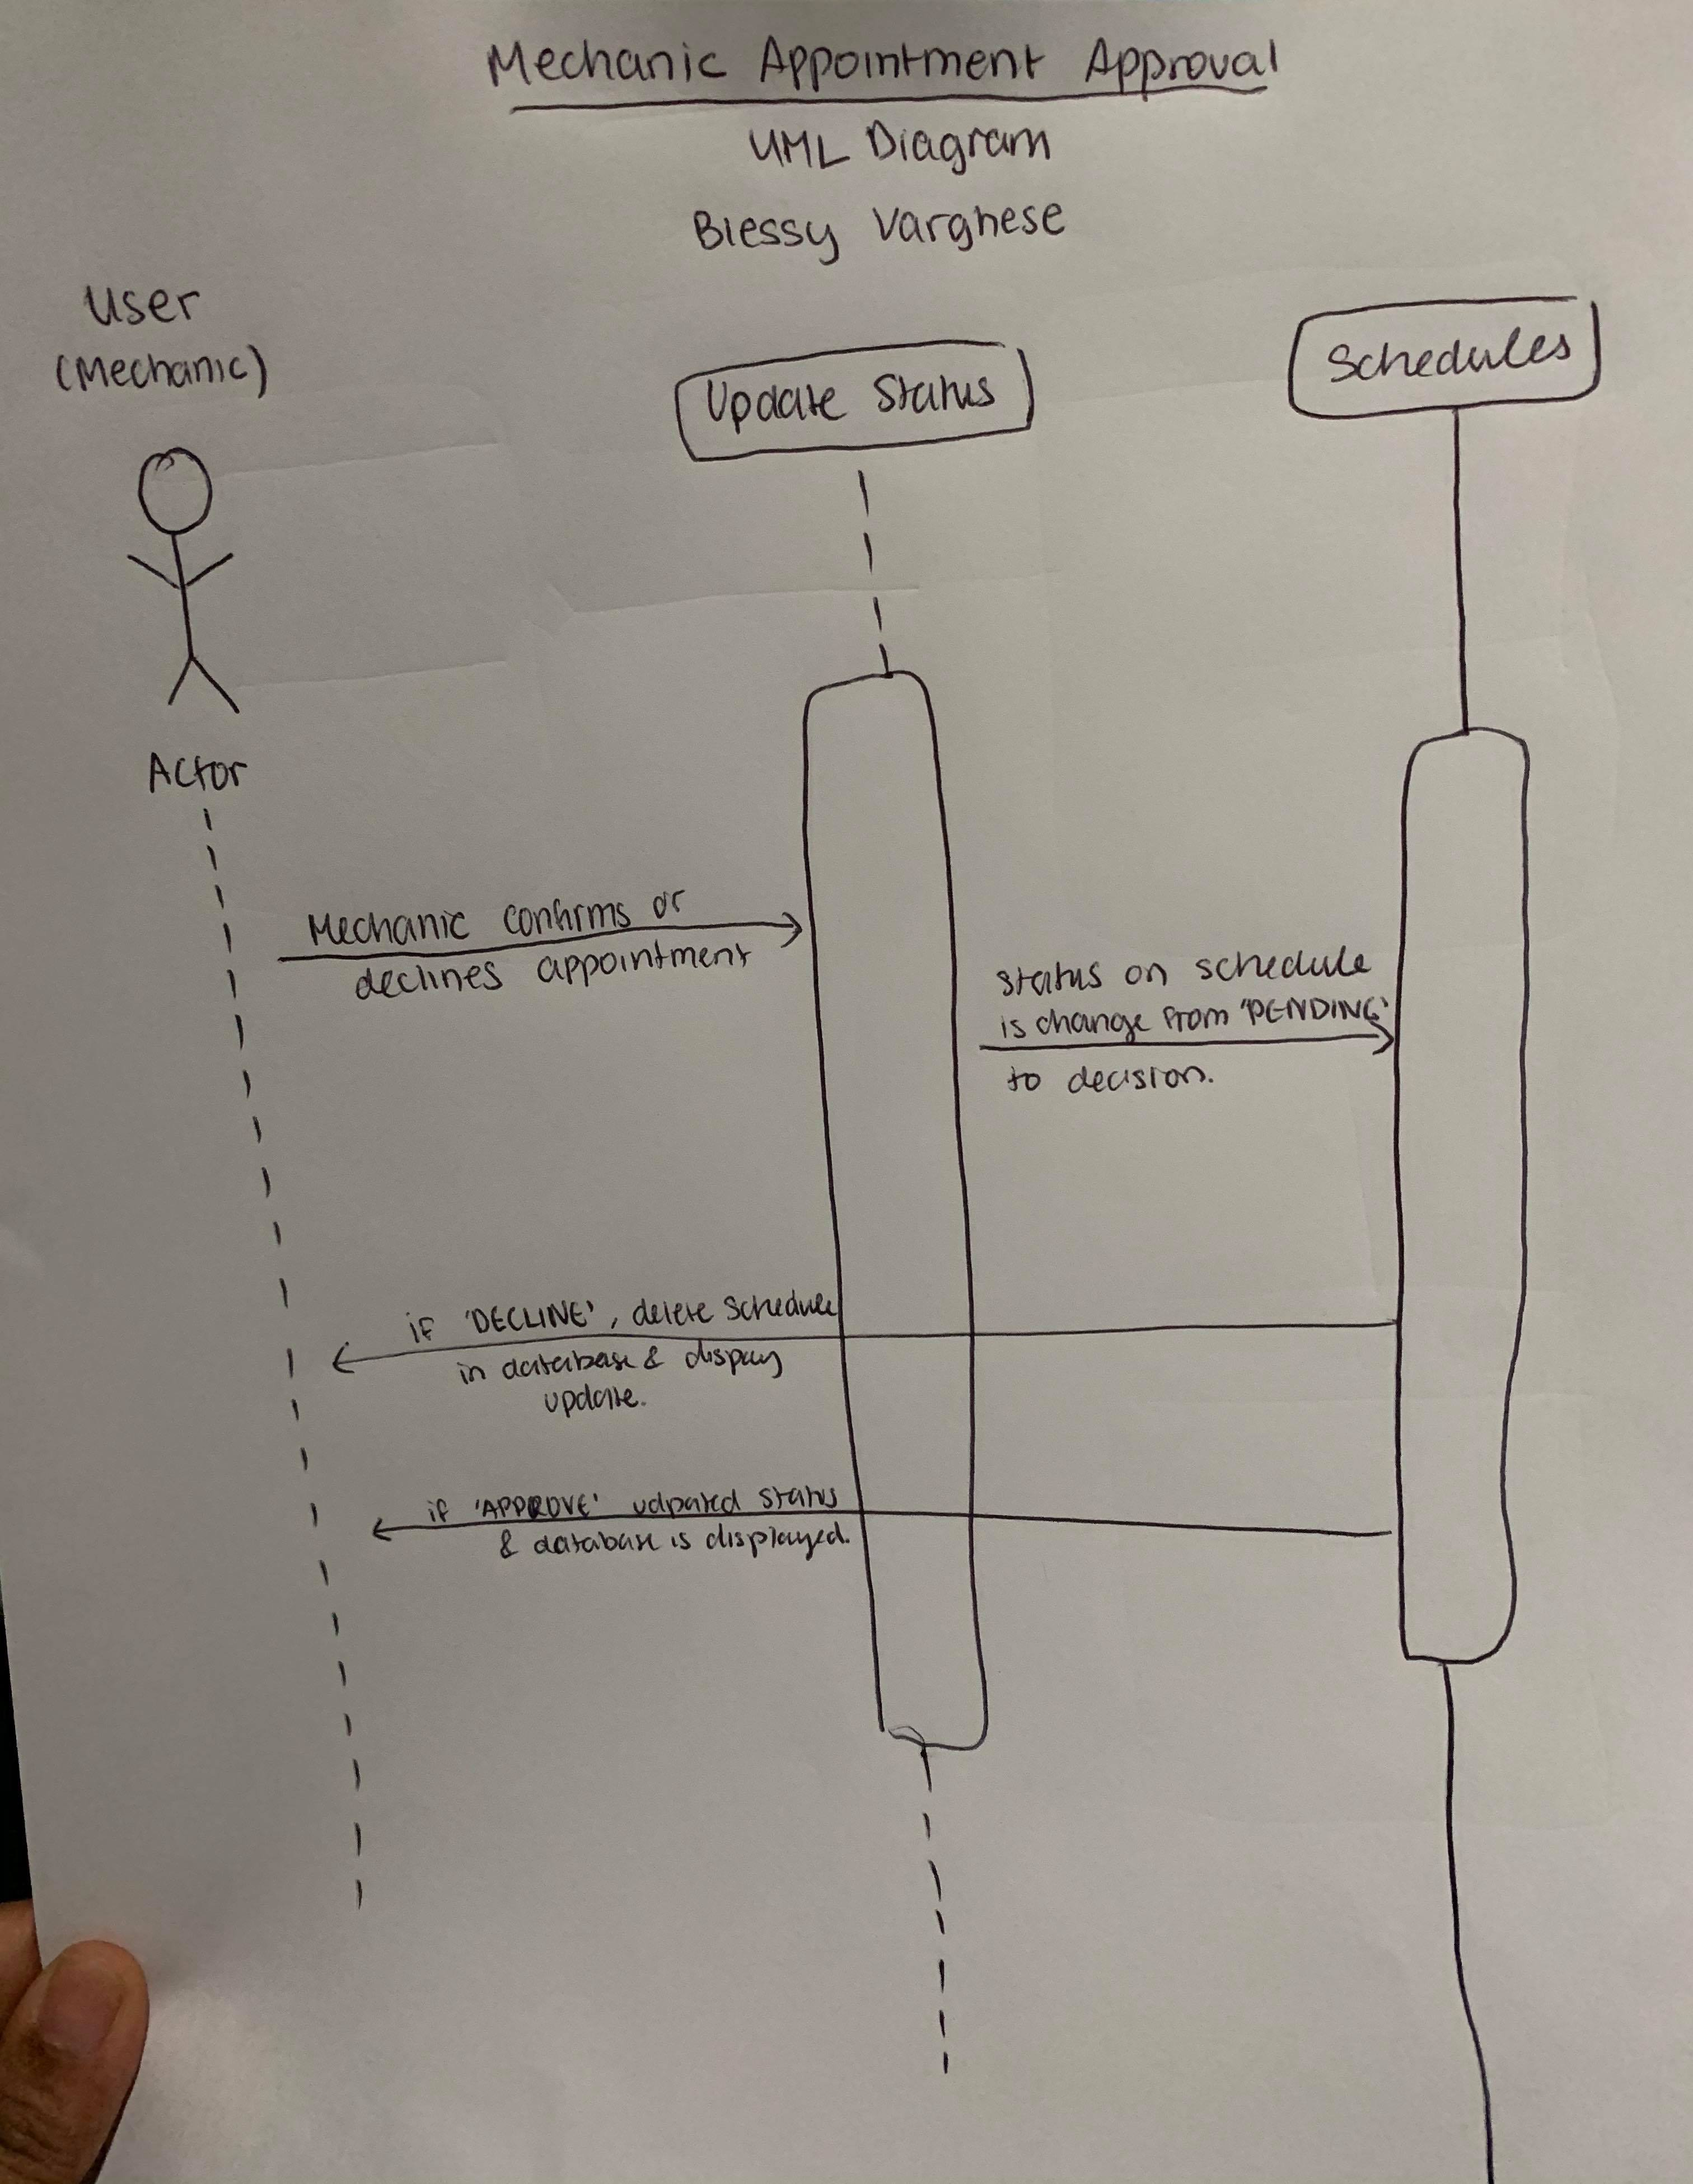 Mechanic Appointment Approval
UML Diagram
Blessy Varghese
User
(Mechanic)
Update Status
Schedules
Actor
Mechanic confirms or
declines appointment
status on schedule
is change from 'PENDING'
to decision.
if 'DECLINE', delete schedule
in database & display
update.
if 'APPROVE' udpated status
& database is displayed.